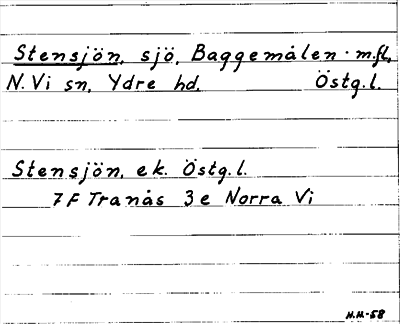 Stensjön, sjö, Baggemålen · m.fl.
N. Vi sn, Ydre hd. Östg.l.
Stensjön, ek. Östg.l.
7 F Tranås 3 e Norra Vi
H.H-58